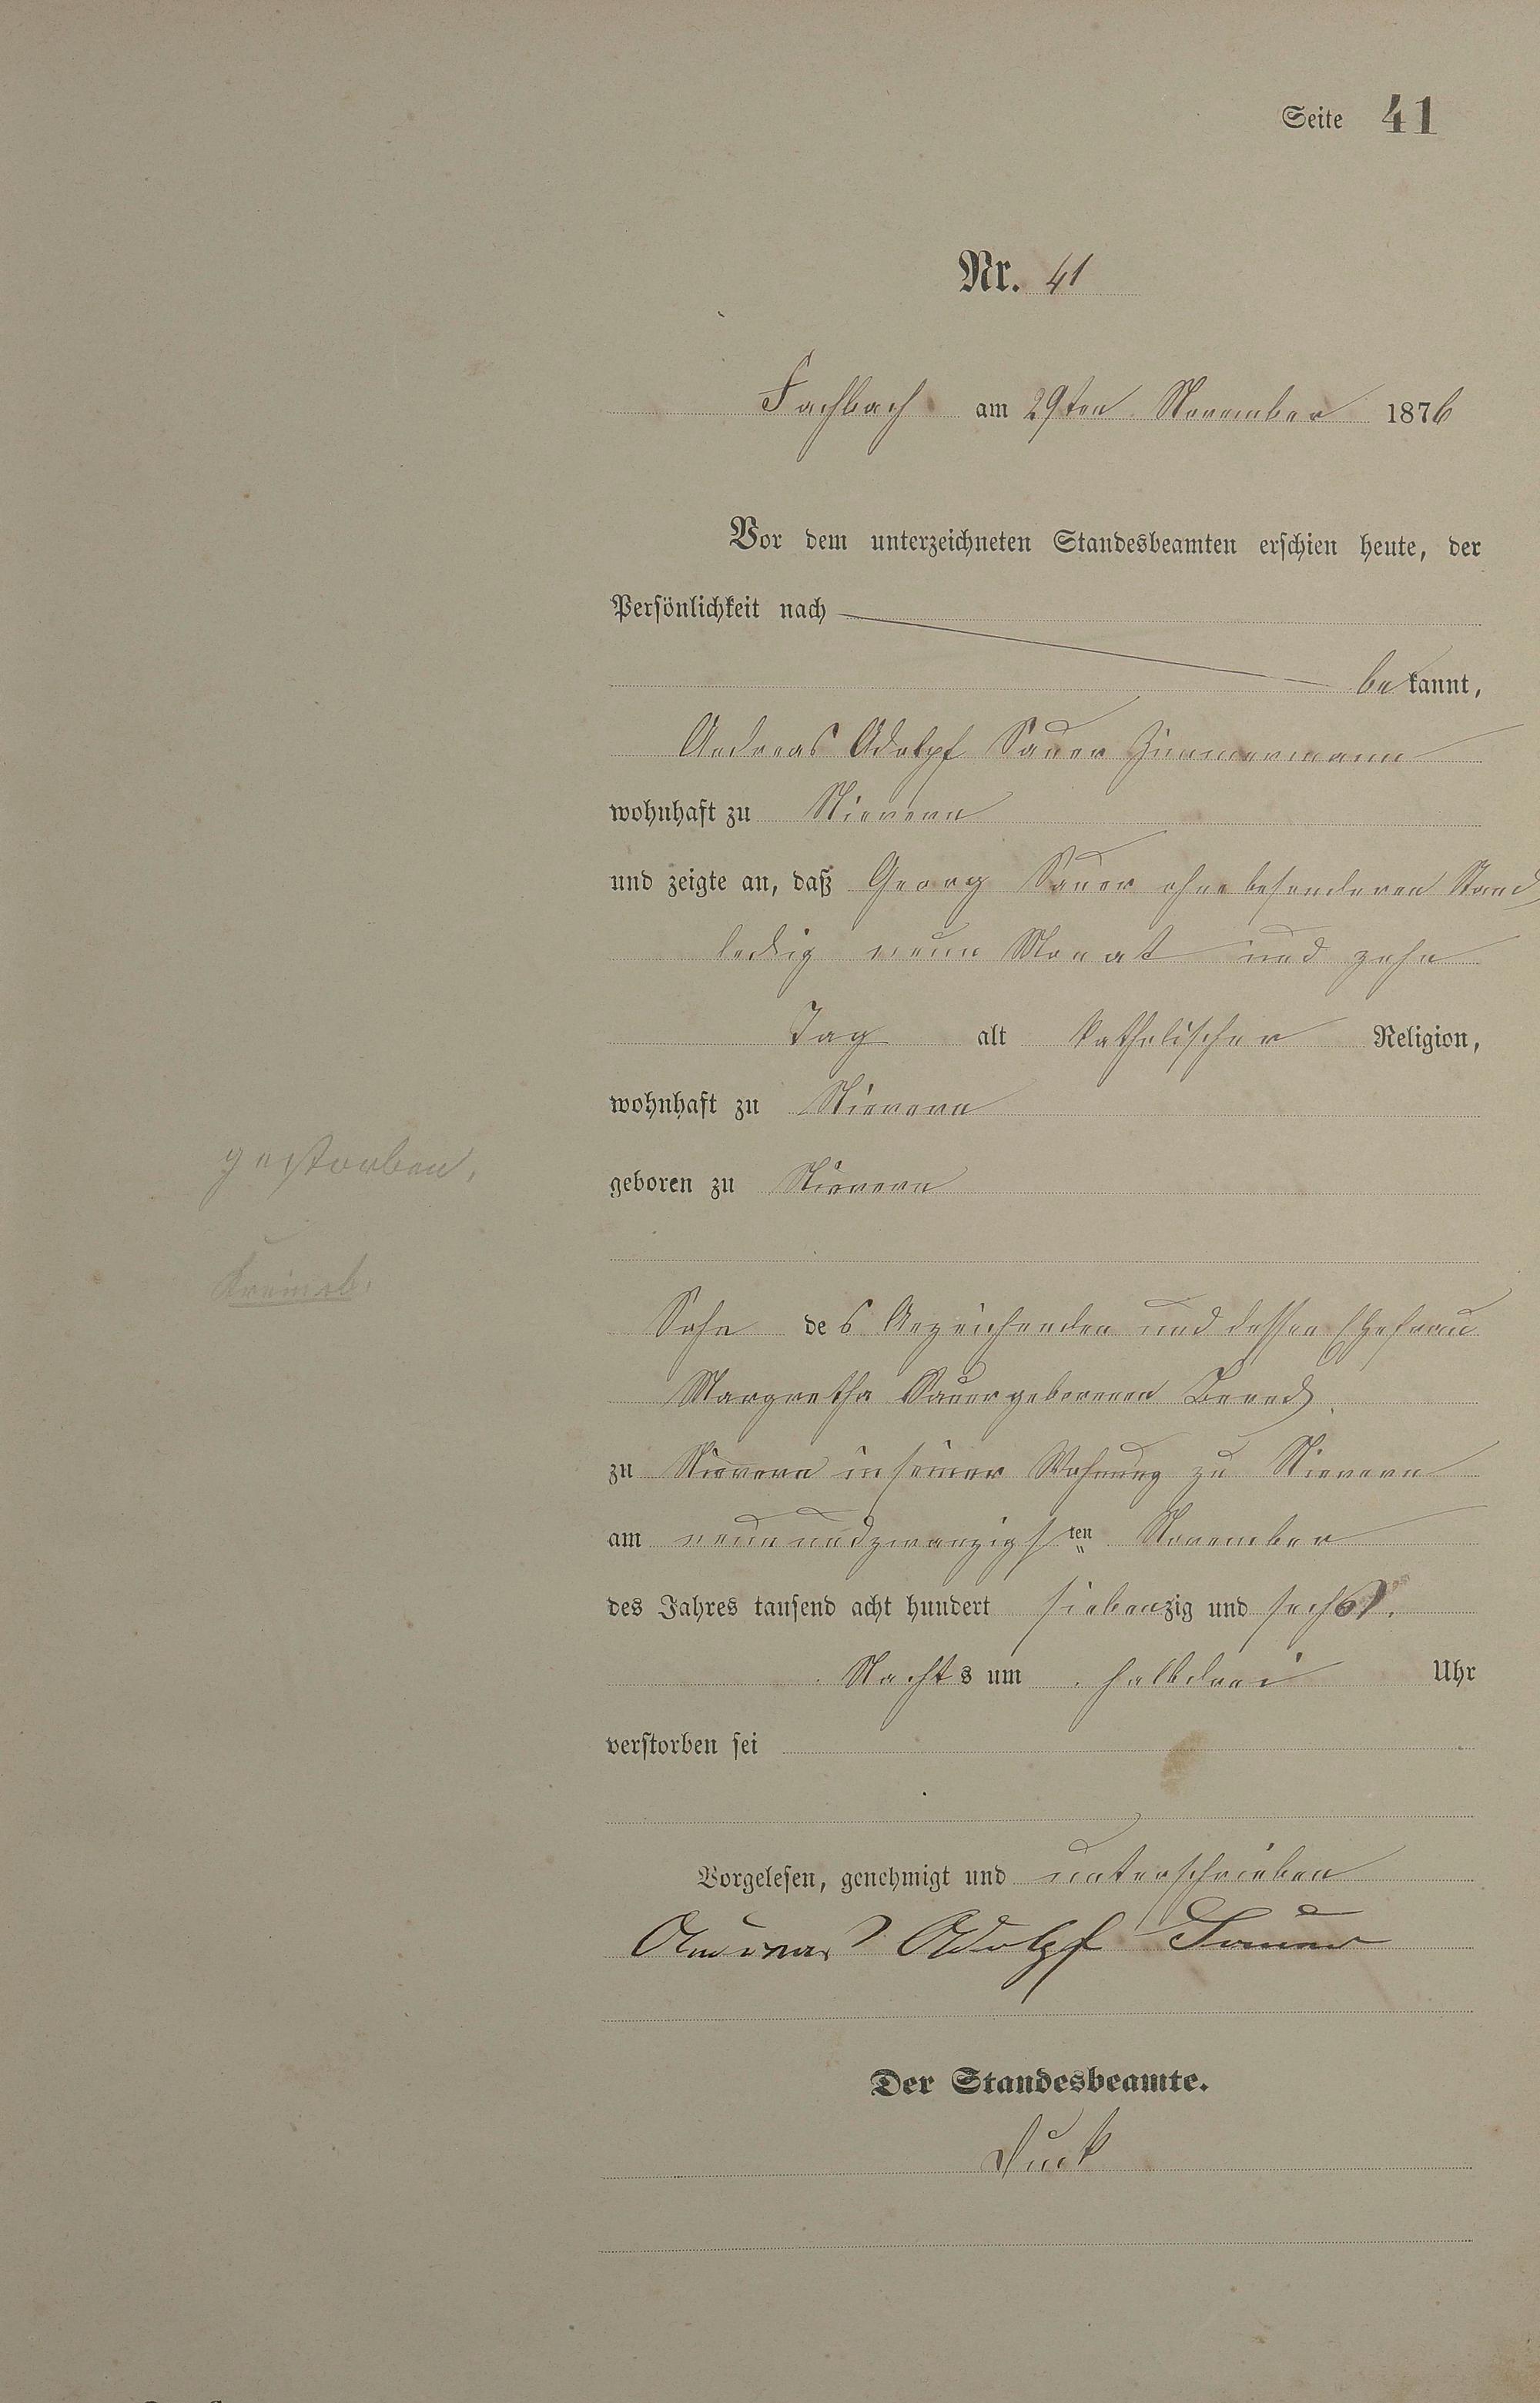 Seite 41
Nr. 41
Fachbach am 29ten November 1876
Vor dem unterzeichneten Standesbeamten erschien heute, der
Persönlichkeit nach
bekannt,
Andreas Adolph Sauer Zimmermann
wohnhaft zu Nievern
und zeigte an, daß Georg Sauer ohne besonderen Stand
ledig neun Monat und zehn
Tag alt katholischer Religion,
wohnhaft zu Nievern
gestorben.
geboren zu Nievern
Sohn des Anzeichenden und dessen Ehefrau
Margretha Sauer geborenen
zu Nievern in seiner Wohnung zu Nievern
am neunundzwanzigsten November
des Jahres tausend acht hundert siebenzig und sechs.
Nachts um halbdrei Uhr
verstorben sei
Vorgelesen, genehmigt und unterschrieben
Andreas Adolph Sauer
Der Standesbeamte.